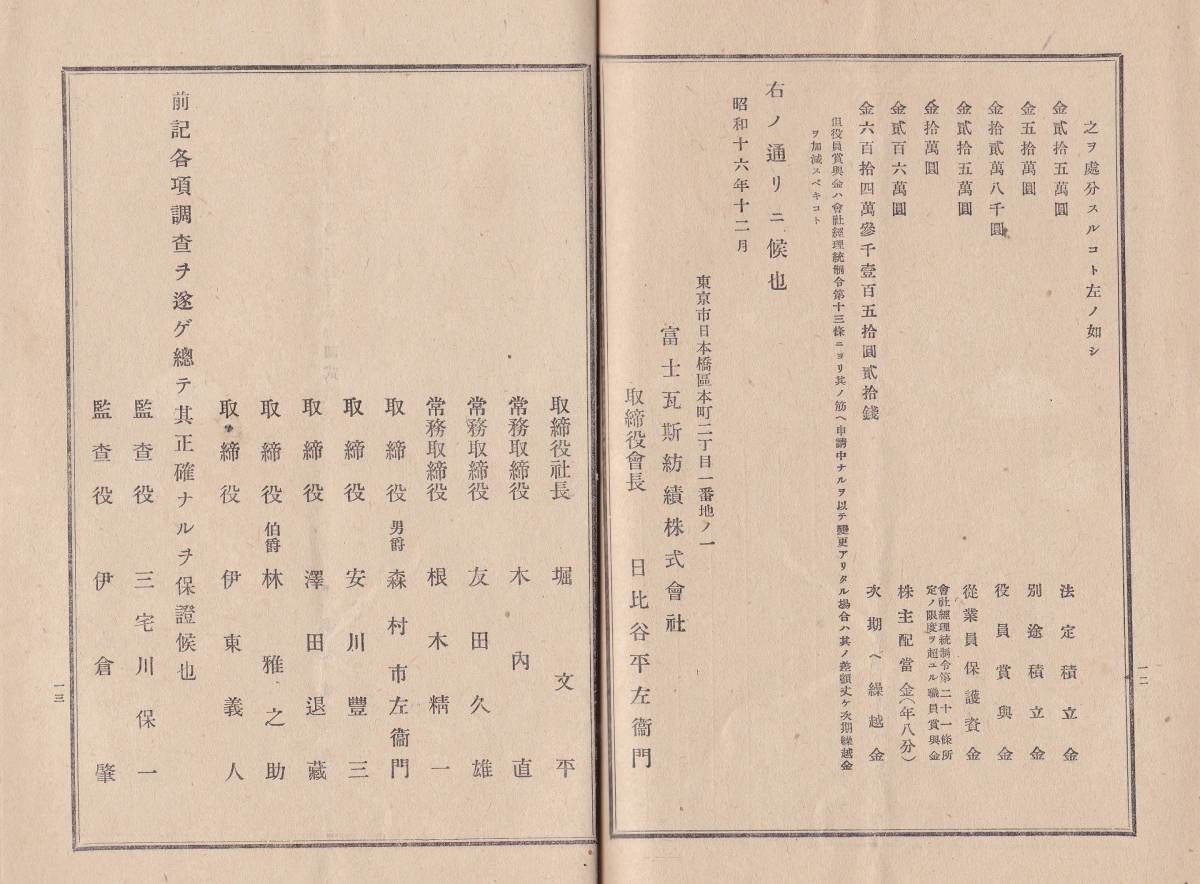 之ヲ處分スルコト左ノ如シ
金貳拾五萬圓 法定積立金
金五拾萬圓 別途積立金
金拾貳萬八千圓 役員賞與金
金貳拾五萬圓 從業員保護資金
金拾萬圓 會社經理統制令第二十一條所定ノ限度ヲ超ユル職員賞與金
金貳百六萬圓 株主配當金(年八分)
金六百拾四萬參千壹百五拾圓貳拾錢 次期ヘ繰越金
但役員賞與金ハ會社經理統制令第十三條ニヨリ其ノ筋ヘ申請中ナルヲ以テ變更アリタル場合ハ其ノ差額丈ケ次期繰越金
ヲ加減スベキコト
右ノ通リニ候也
昭和十六年十二月
東京市日本橋區本町二丁目一番地ノ一
富士瓦斯紡績株式會社
取締役會長 日比谷平左衞門
一二
取締役社長 堀文平
常務取締役 木內直
常務取締役 友田久雄
常務取締役 根木精一
取締役 男爵 森村市左衞門
取締役 安川豐三
取締役 澤田退藏
取締役 伯爵 林雅之助
取締役 伊東義人
前記各項調查ヲ遂ゲ總テ其正確ナルヲ保證候也
監查役 三宅川保一
監查役 伊倉肇
一三